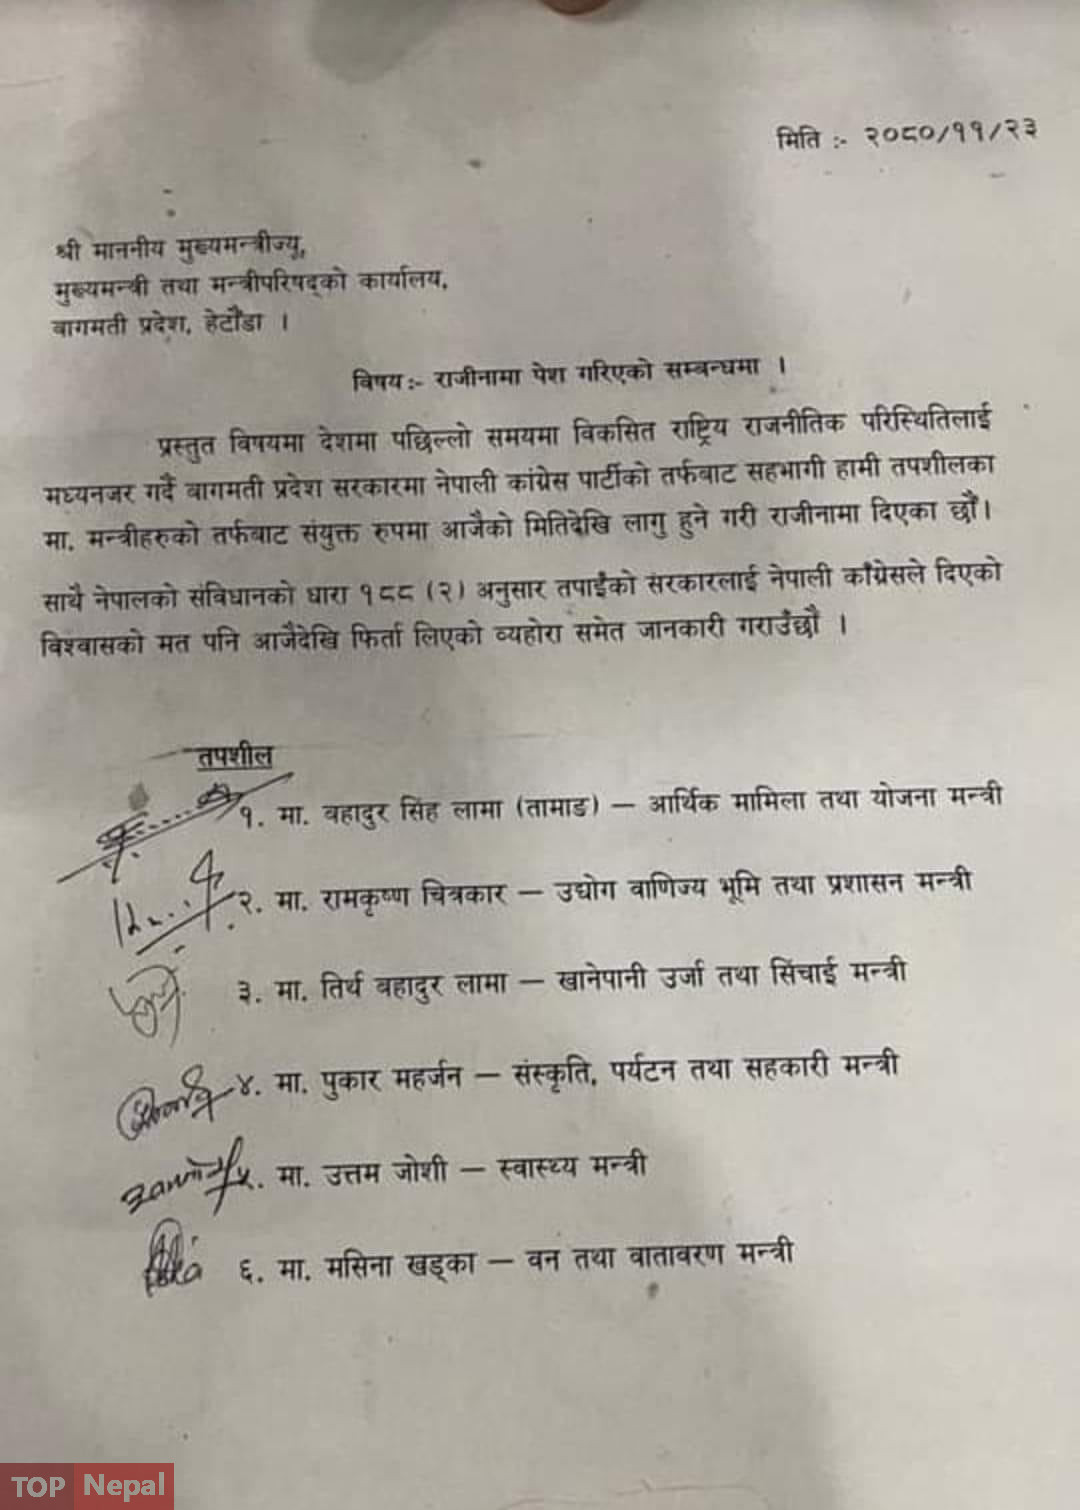 मिति :- २०८०/११/२३
श्री माननीय मुख्यमन्त्रीज्यू,
मुख्यमन्त्री तथा मन्त्रीपरिषद्को कार्यालय,
बागमती प्रदेश, हेटौंडा ।
विषय:- राजीनामा पेश गरिएको सम्बन्धमा ।
प्रस्तुत विषयमा देशमा पछिल्लो समयमा विकसित राष्ट्रिय राजनीतिक परिस्थितिलाई
मध्यनजर गर्दै बागमती प्रदेश सरकारमा नेपाली कांग्रेस पार्टीको तर्फबाट सहभागी हामी तपशीलका
मा. मन्त्रीहरुको तर्फबाट संयुक्त रुपमा आजैको मितिदेखि लागु हुने गरी राजीनामा दिएका छौं।
साथै नेपालको संविधानको धारा १८८ (२) अनुसार तपाईंको सरकारलाई नेपाली काँग्रेसले दिएको
विश्वासको मत पनि आजैदेखि फिर्ता लिएको व्यहोरा समेत जानकारी गराउँछौं ।
तपशील
१. मा. बहादुर सिंह लामा (तामाङ) – आर्थिक मामिला तथा योजना मन्त्री
२. मा. रामकृष्ण चित्रकार – उद्योग वाणिज्य भूमि तथा प्रशासन मन्त्री
३. मा. तिर्थ बहादुर लामा – खानेपानी उर्जा तथा सिंचाई मन्त्री
४. मा. पुकार महर्जन – संस्कृति, पर्यटन तथा सहकारी मन्त्री
५. मा. उत्तम जोशी – स्वास्थ्य मन्त्री
६. मा. मसिना खड्का – वन तथा वातावरण मन्त्री
TOP Nepal